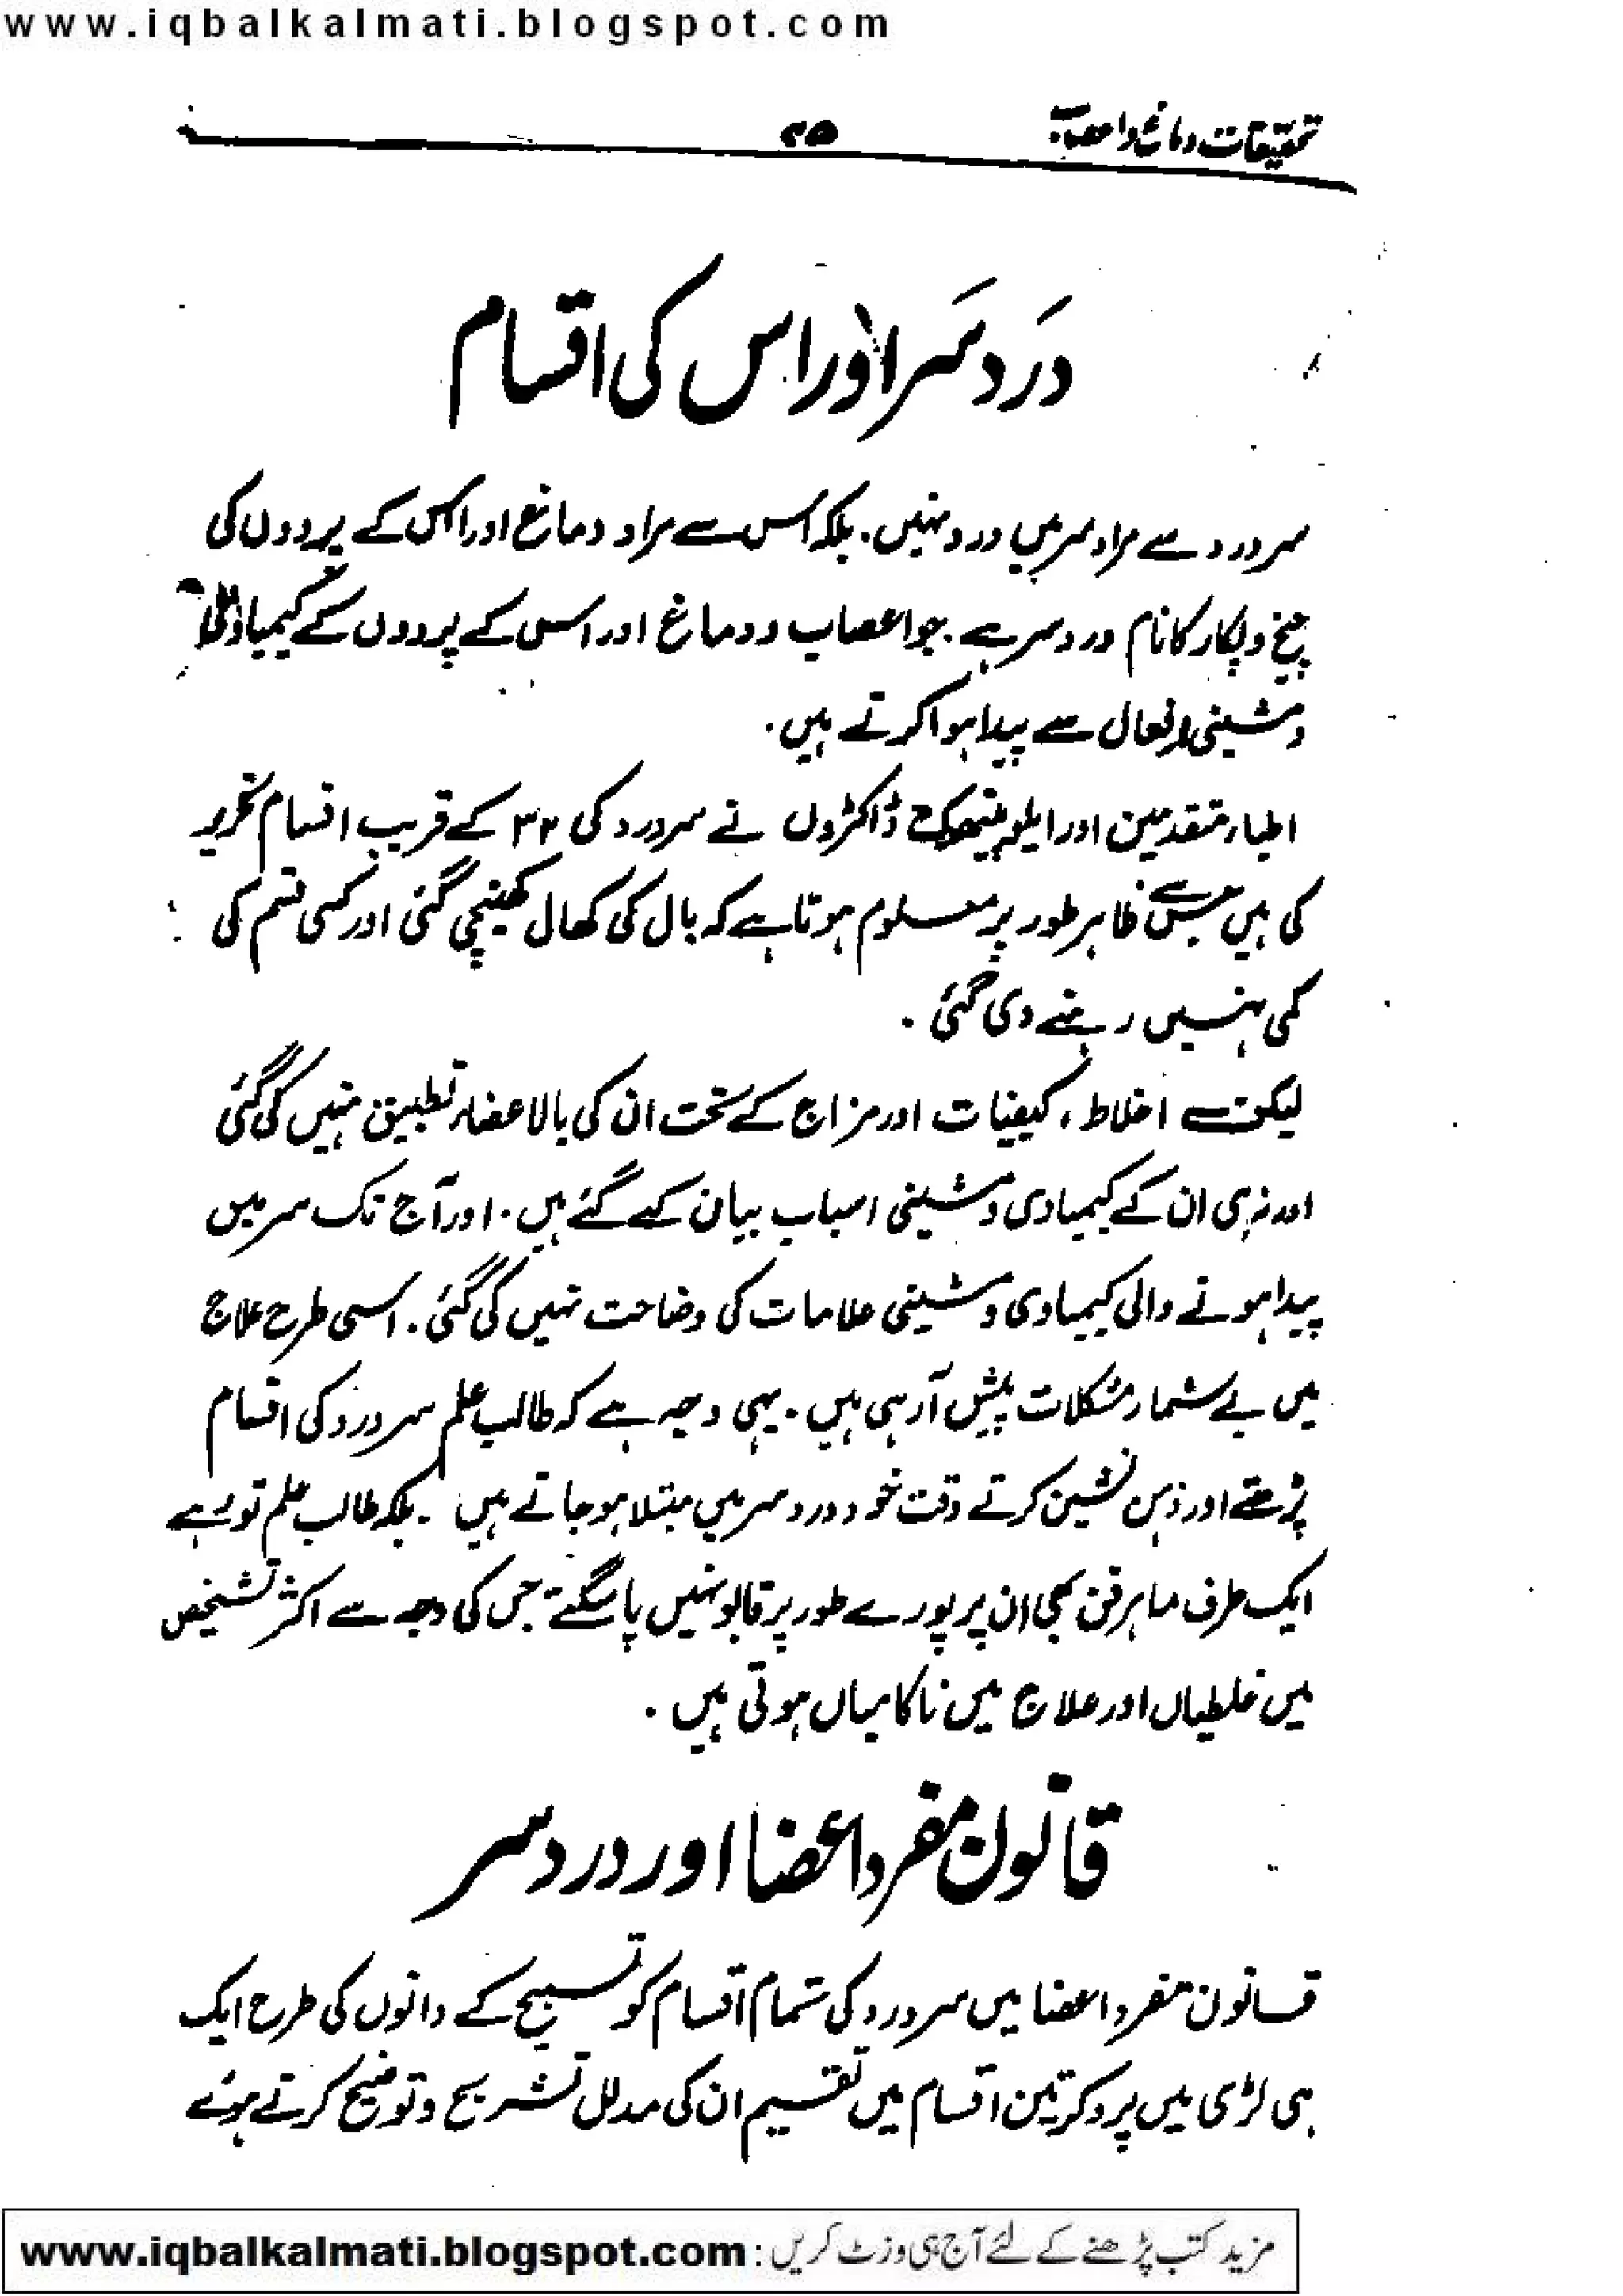 www.iqbalkalmati.blogspot.com
تحقیقات دماغ و اعصاب ۲۵
دردسر اور اس کی اقسام
سردرد سے مراد سر میں درد نہیں. بلکہ اس سے مراد دماغ اور اس کے پردوں کی
چیخ و پکار کا نام دردسر ہے. جو اعصاب و دماغ اور اس کے پردوں کے کیمیاوی
و مشینی افعال سے پیدا ہوا کرتے ہیں.
اطباء متقدمین اور ایلوپیتھک ڈاکٹروں نے سردرد کی ۳۲ کے قریب اقسام تحریر
کی ہیں جس سے ظاہر طور پر معلوم ہوتا ہے کہ بال کی کھال کھینچی گئی اور کسی قسم کی
کمی نہیں رہنے دی گئی .
لیکن اخلاط ، کیفیات اور مزاج کے تحت ان کی بالاعضاء تطبیق نہیں کی گئی
اور نہ ہی ان کے کیمیاوی و مشینی اسباب بیان کیے گئے ہیں. اور آج تک سر میں
پیدا ہونے والی کیمیاوی و مشینی علامات کی وضاحت نہیں کی گئی. اسی طرح علاج
میں بے شمار مشکلات پیش آرہی ہیں. یہی وجہ ہے کہ طالب علم سردرد کی اقسام
پڑھتے اور ذہن نشین کرتے وقت خود دردسر میں مبتلا ہو جاتے ہیں. بلکہ طالب علم تو رہے
ایک طرف ماہر فن بھی ان پر پورے طور پر قابو نہیں پا سکتے جس کی وجہ سے اکثر تشخیص
میں غلطیاں اور علاج میں ناکامیاں ہوتی ہیں .
قانون مفرد اعضا اور دردسر
قانون مفرد اعضا میں سردرد کی تمام اقسام کو تسبیح کے دانوں کی طرح ایک
ہی لڑی میں پرو کر تین اقسام میں تقسیم ان کی مدلل تشریح و توضیح کرتے ہوئے
مزید کتب پڑھنے کے لئے آج ہی وزٹ کریں : www.iqbalkalmati.blogspot.com